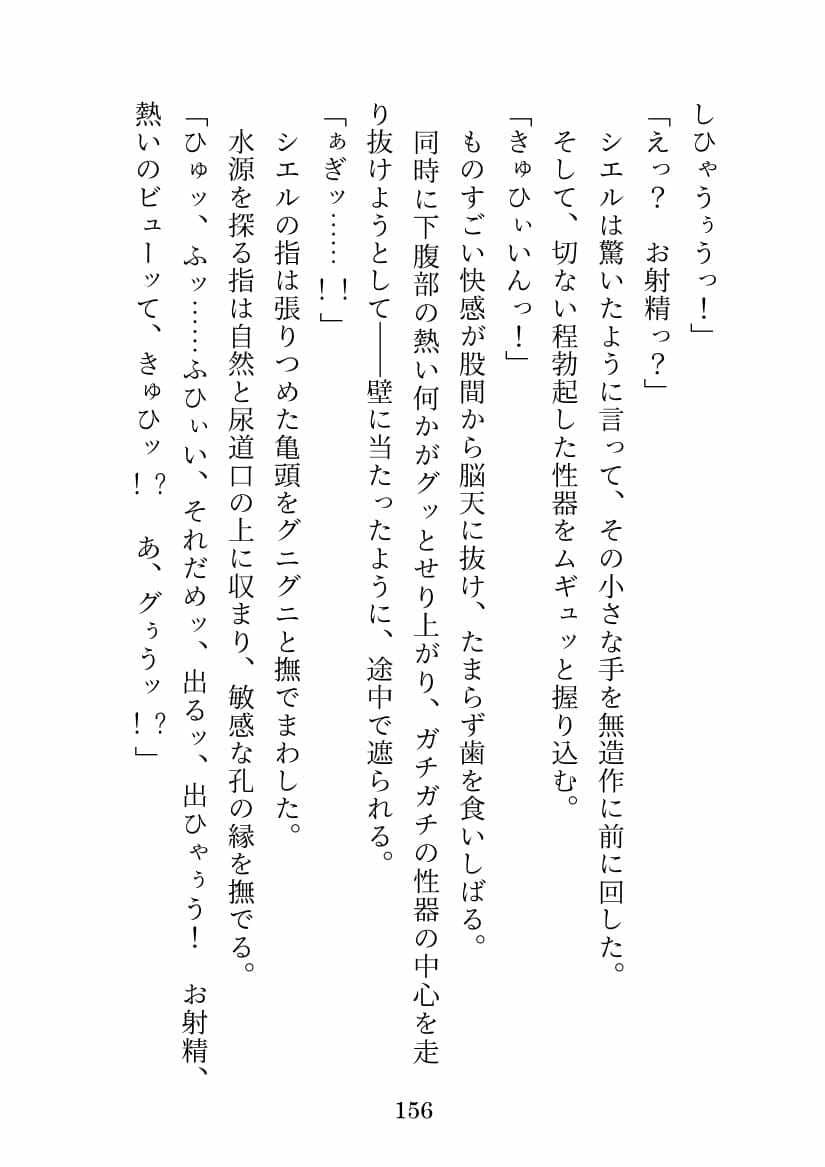 しひゃうぅうっ！」
「えっ？　お射精っ？」
　シエルは驚いたように言って、その小さな手を無造作に前に回した。
　そして、切ない程勃起した性器をムギュッと握り込む。
「きゅひぃいんっ！」
　ものすごい快感が股間から脳天に抜け、たまらず歯を食いしばる。
　同時に下腹部の熱い何かがグッとせり上がり、ガチガチの性器の中心を走
り抜けようとして――壁に当たったように、途中で遮られる。
「ぁぎッ……！！」
　シエルの指は張りつめた亀頭をグニグニと撫でまわした。
　水源を探る指は自然と尿道口の上に収まり、敏感な孔の縁を撫でる。
「ひゅッ、ふッ……ふひぃい、それだめッ、出るッ、出ひゃぅう！　お射精、
熱いのビューッて、きゅひッ！？　あ、グぅうッ！？」
156